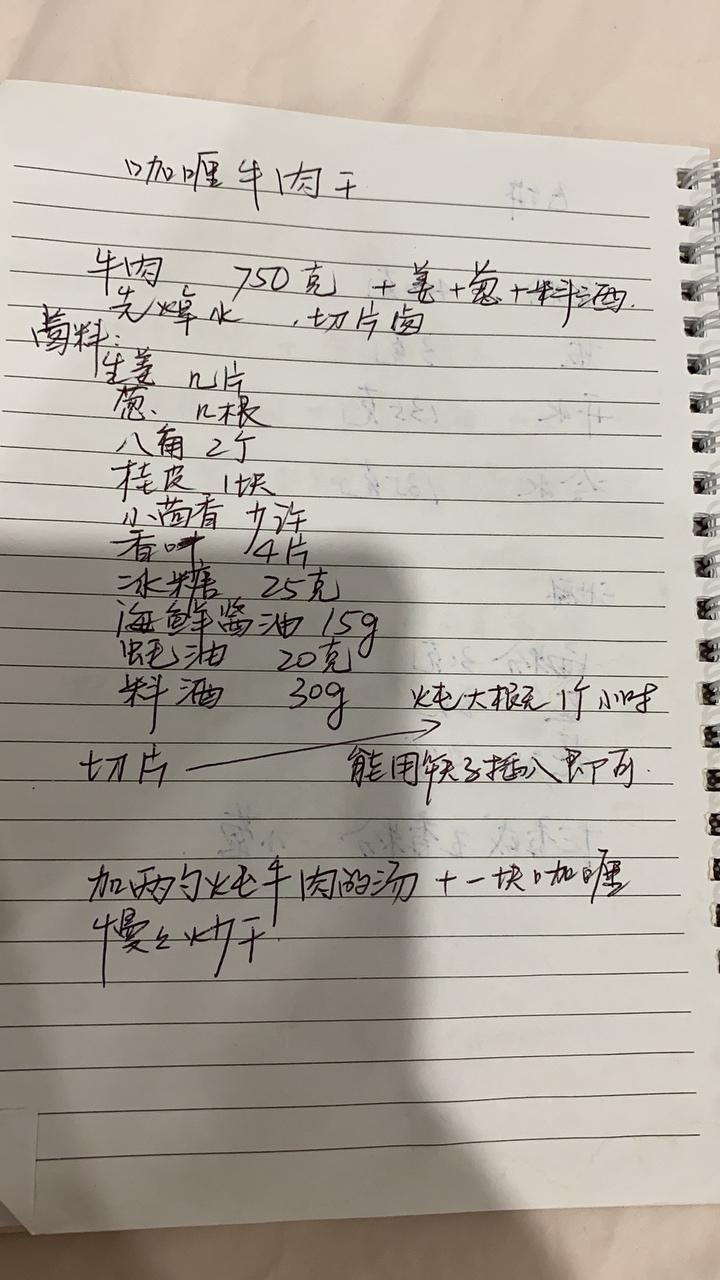 咖喱牛肉干
牛肉 750克 +姜+葱+料酒.
先焯水 .切片卤
卤料:
生姜 几片
葱、 几根
八角 2个
桂皮 1块
小茴香 少许
香叶 4片
冰糖 25克
海鲜酱油 15g
蚝油 20克
料酒 30g 炖大概1个小时
切片 能用筷子插入即可.
加两勺炖牛肉的汤+一块咖喱
慢慢炒干